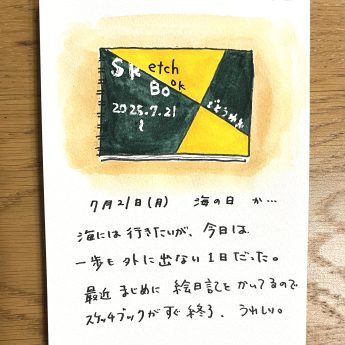 Sketch
Book
2025.7.21
~
どうめん
7月21日(月) 海の日 か…
海には行きたいが、今日は
一歩も外に出ない1日だった。
最近 まじめに 絵日記をかいてるので
スケッチブックがすぐ終了、うれしい。